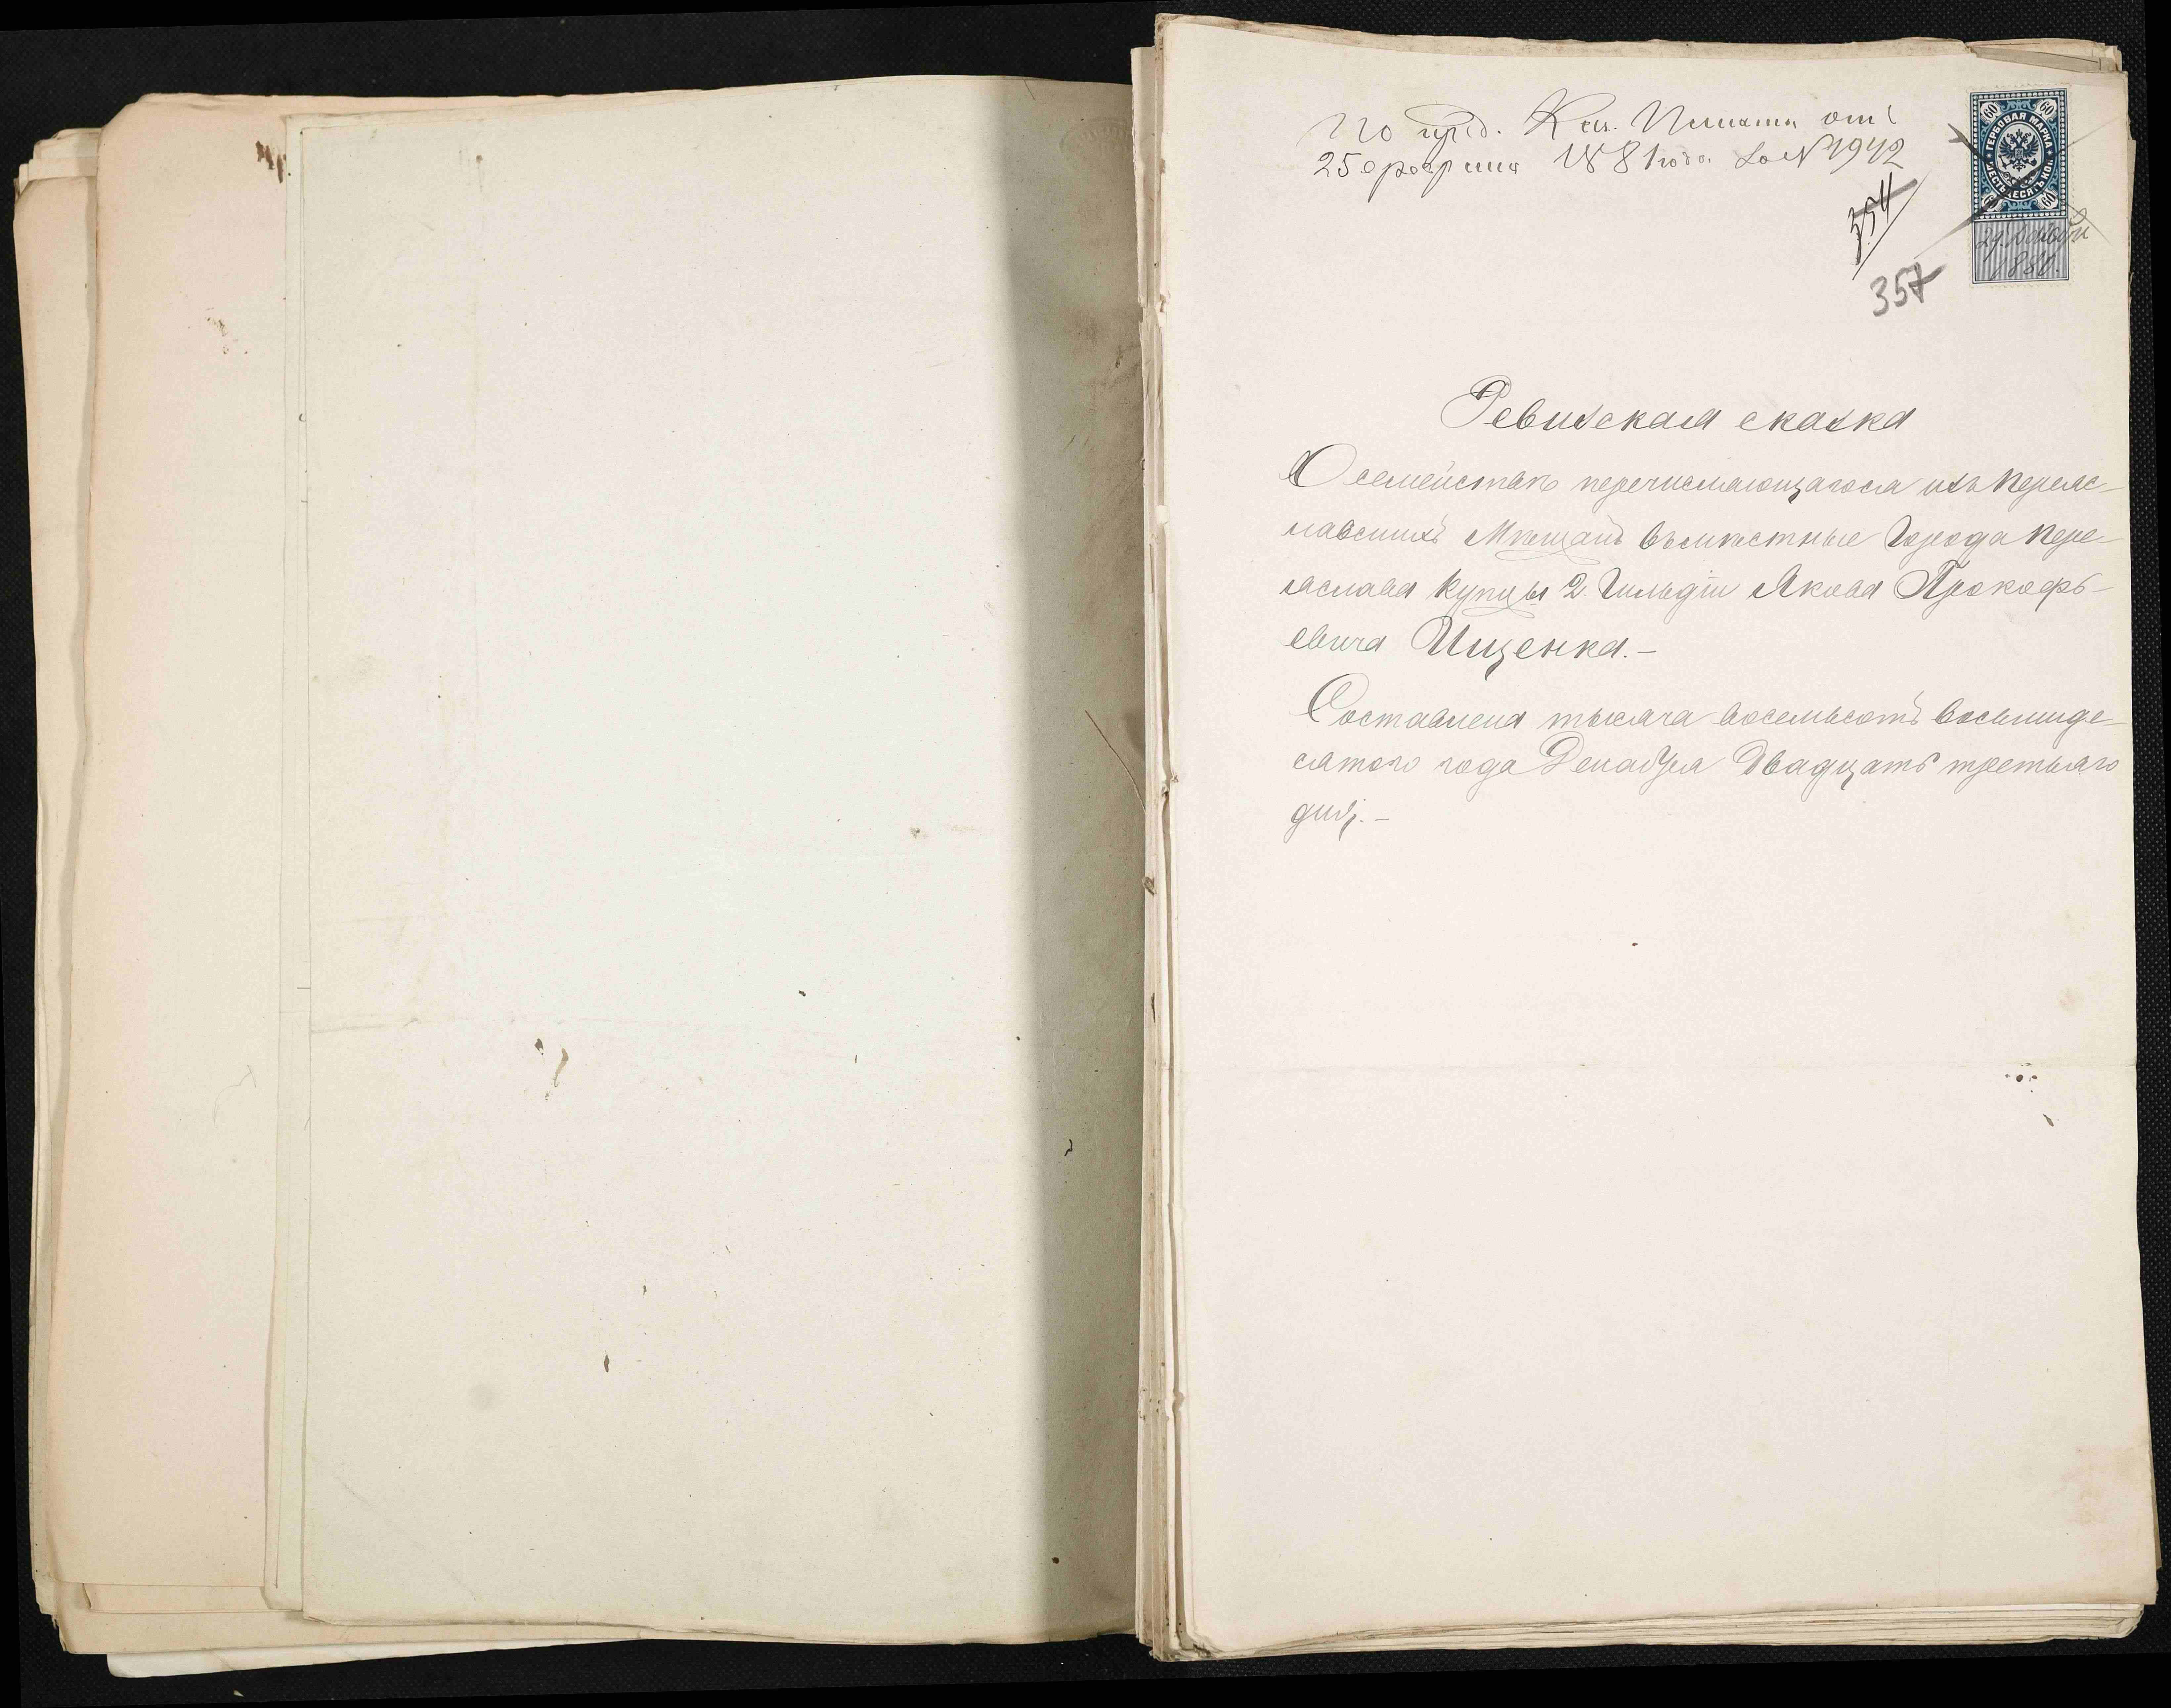 По пред. Каз. Палаты отъ
25 февраля 1881 года за № 1942
60 60
ГЕРБОВАЯ МАРКА
ШЕСТЬДЕСЯТЪ КОП.
60 60
29. Декабря
1880.
354
357
Ревизская сказка
О семействѣ перечисляющагося изъ Переяс-
лавскихъ Мѣщанъ въ мѣстные города Пере-
яслава купцы 2. Гильдіи Якова Прокофь-
евича Ищенка.-
Составлена тысяча восемьсотъ восьмиде-
сятого года Декабря двадцать третьяго
дня.-